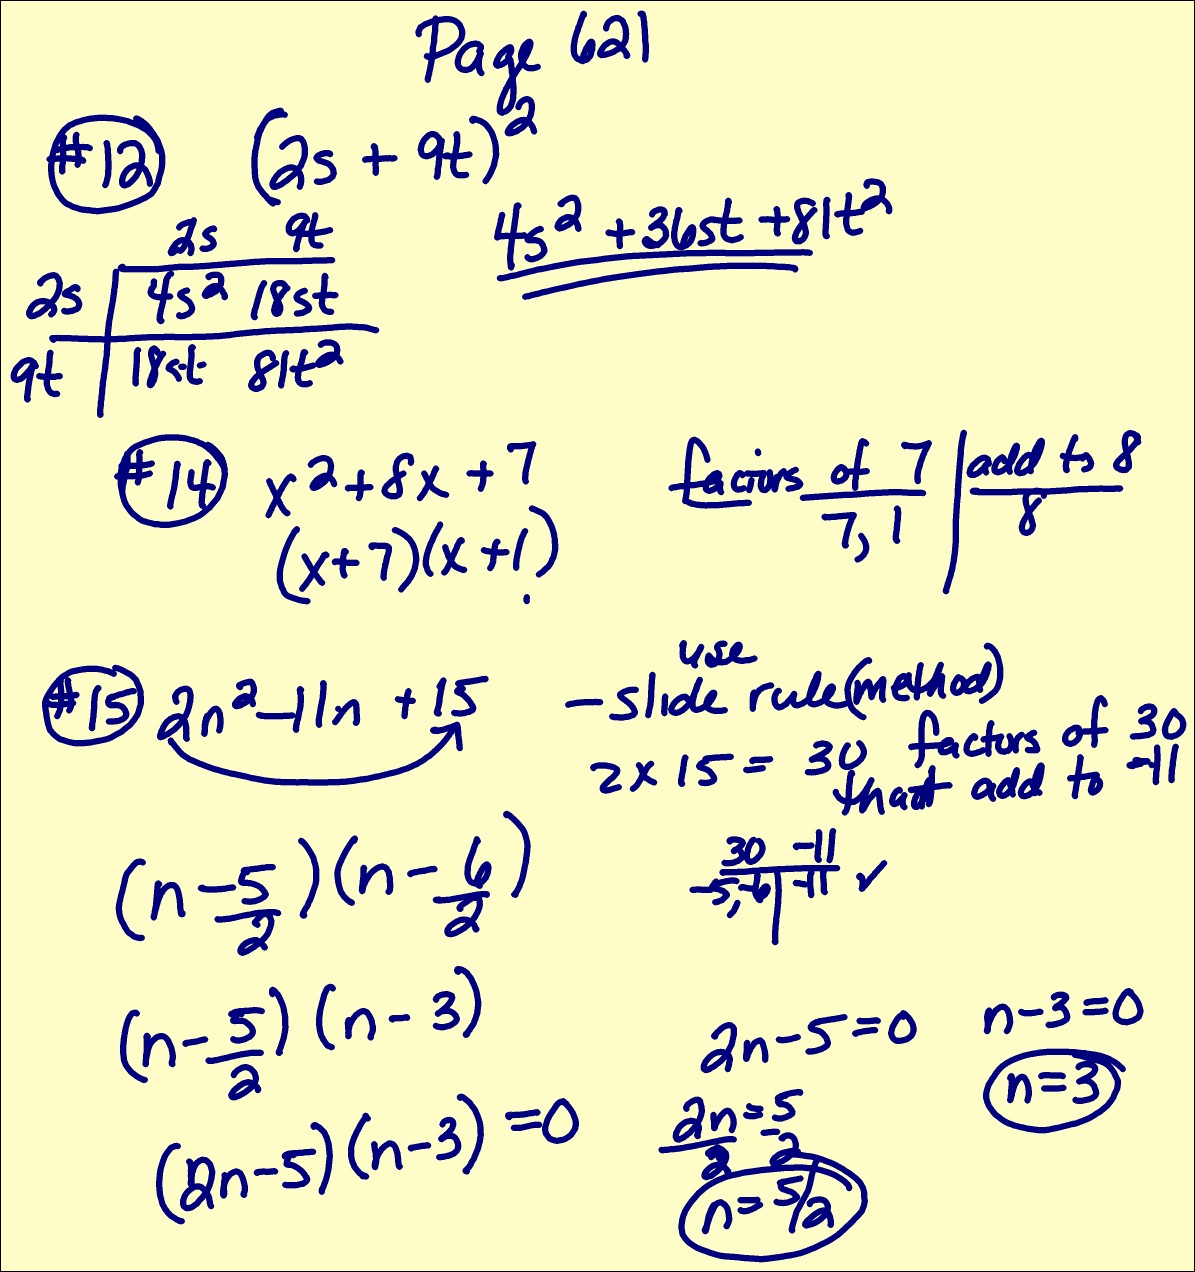 Page 621
#12 (2s + 9t)²
4s² + 36st + 81t²
2s 9t
2s 4s² 18st
9t 18st 81t²
#14 x² + 8x + 7
(x + 7)(x + 1)
factors of 7 | add to 8
7, 1 | 8
#15 2n² – 11n + 15
use
– slide rule (method)
2 x 15 = 30 factors of 30
that add to -11
30 -11
-5, -6 | -11 ✓
(n – 5/2)(n – 6/2)
(n – 5/2)(n – 3)
(2n – 5)(n – 3) = 0
2n – 5 = 0
2n = 5
2 2
n = 5/2
n – 3 = 0
n = 3